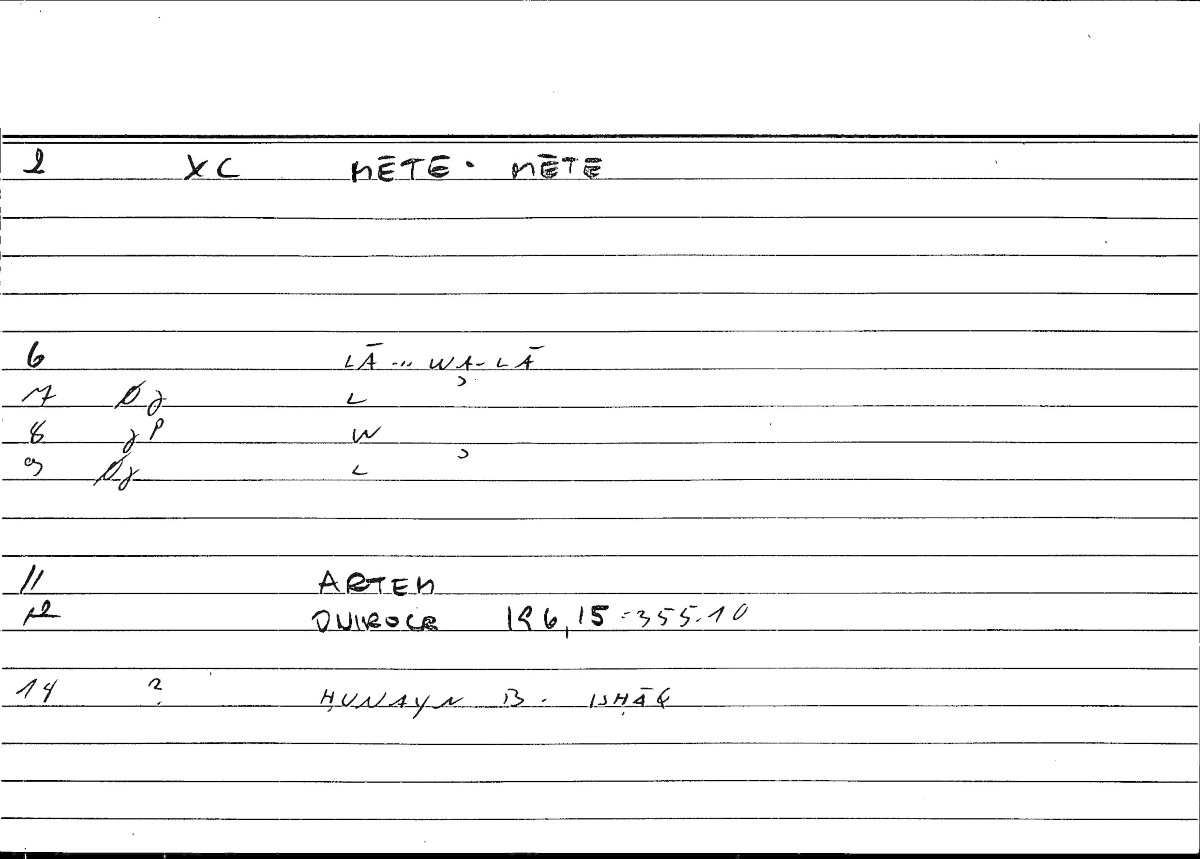 2 XC MĒTE · MĒTE
6 LĀ ... WA-LĀ
7 L
8 W
9 L
11 ARTEM
12 ONIROCR 196,15 = 355.10
14 ? ḤUNAYN B. ISḤĀQ